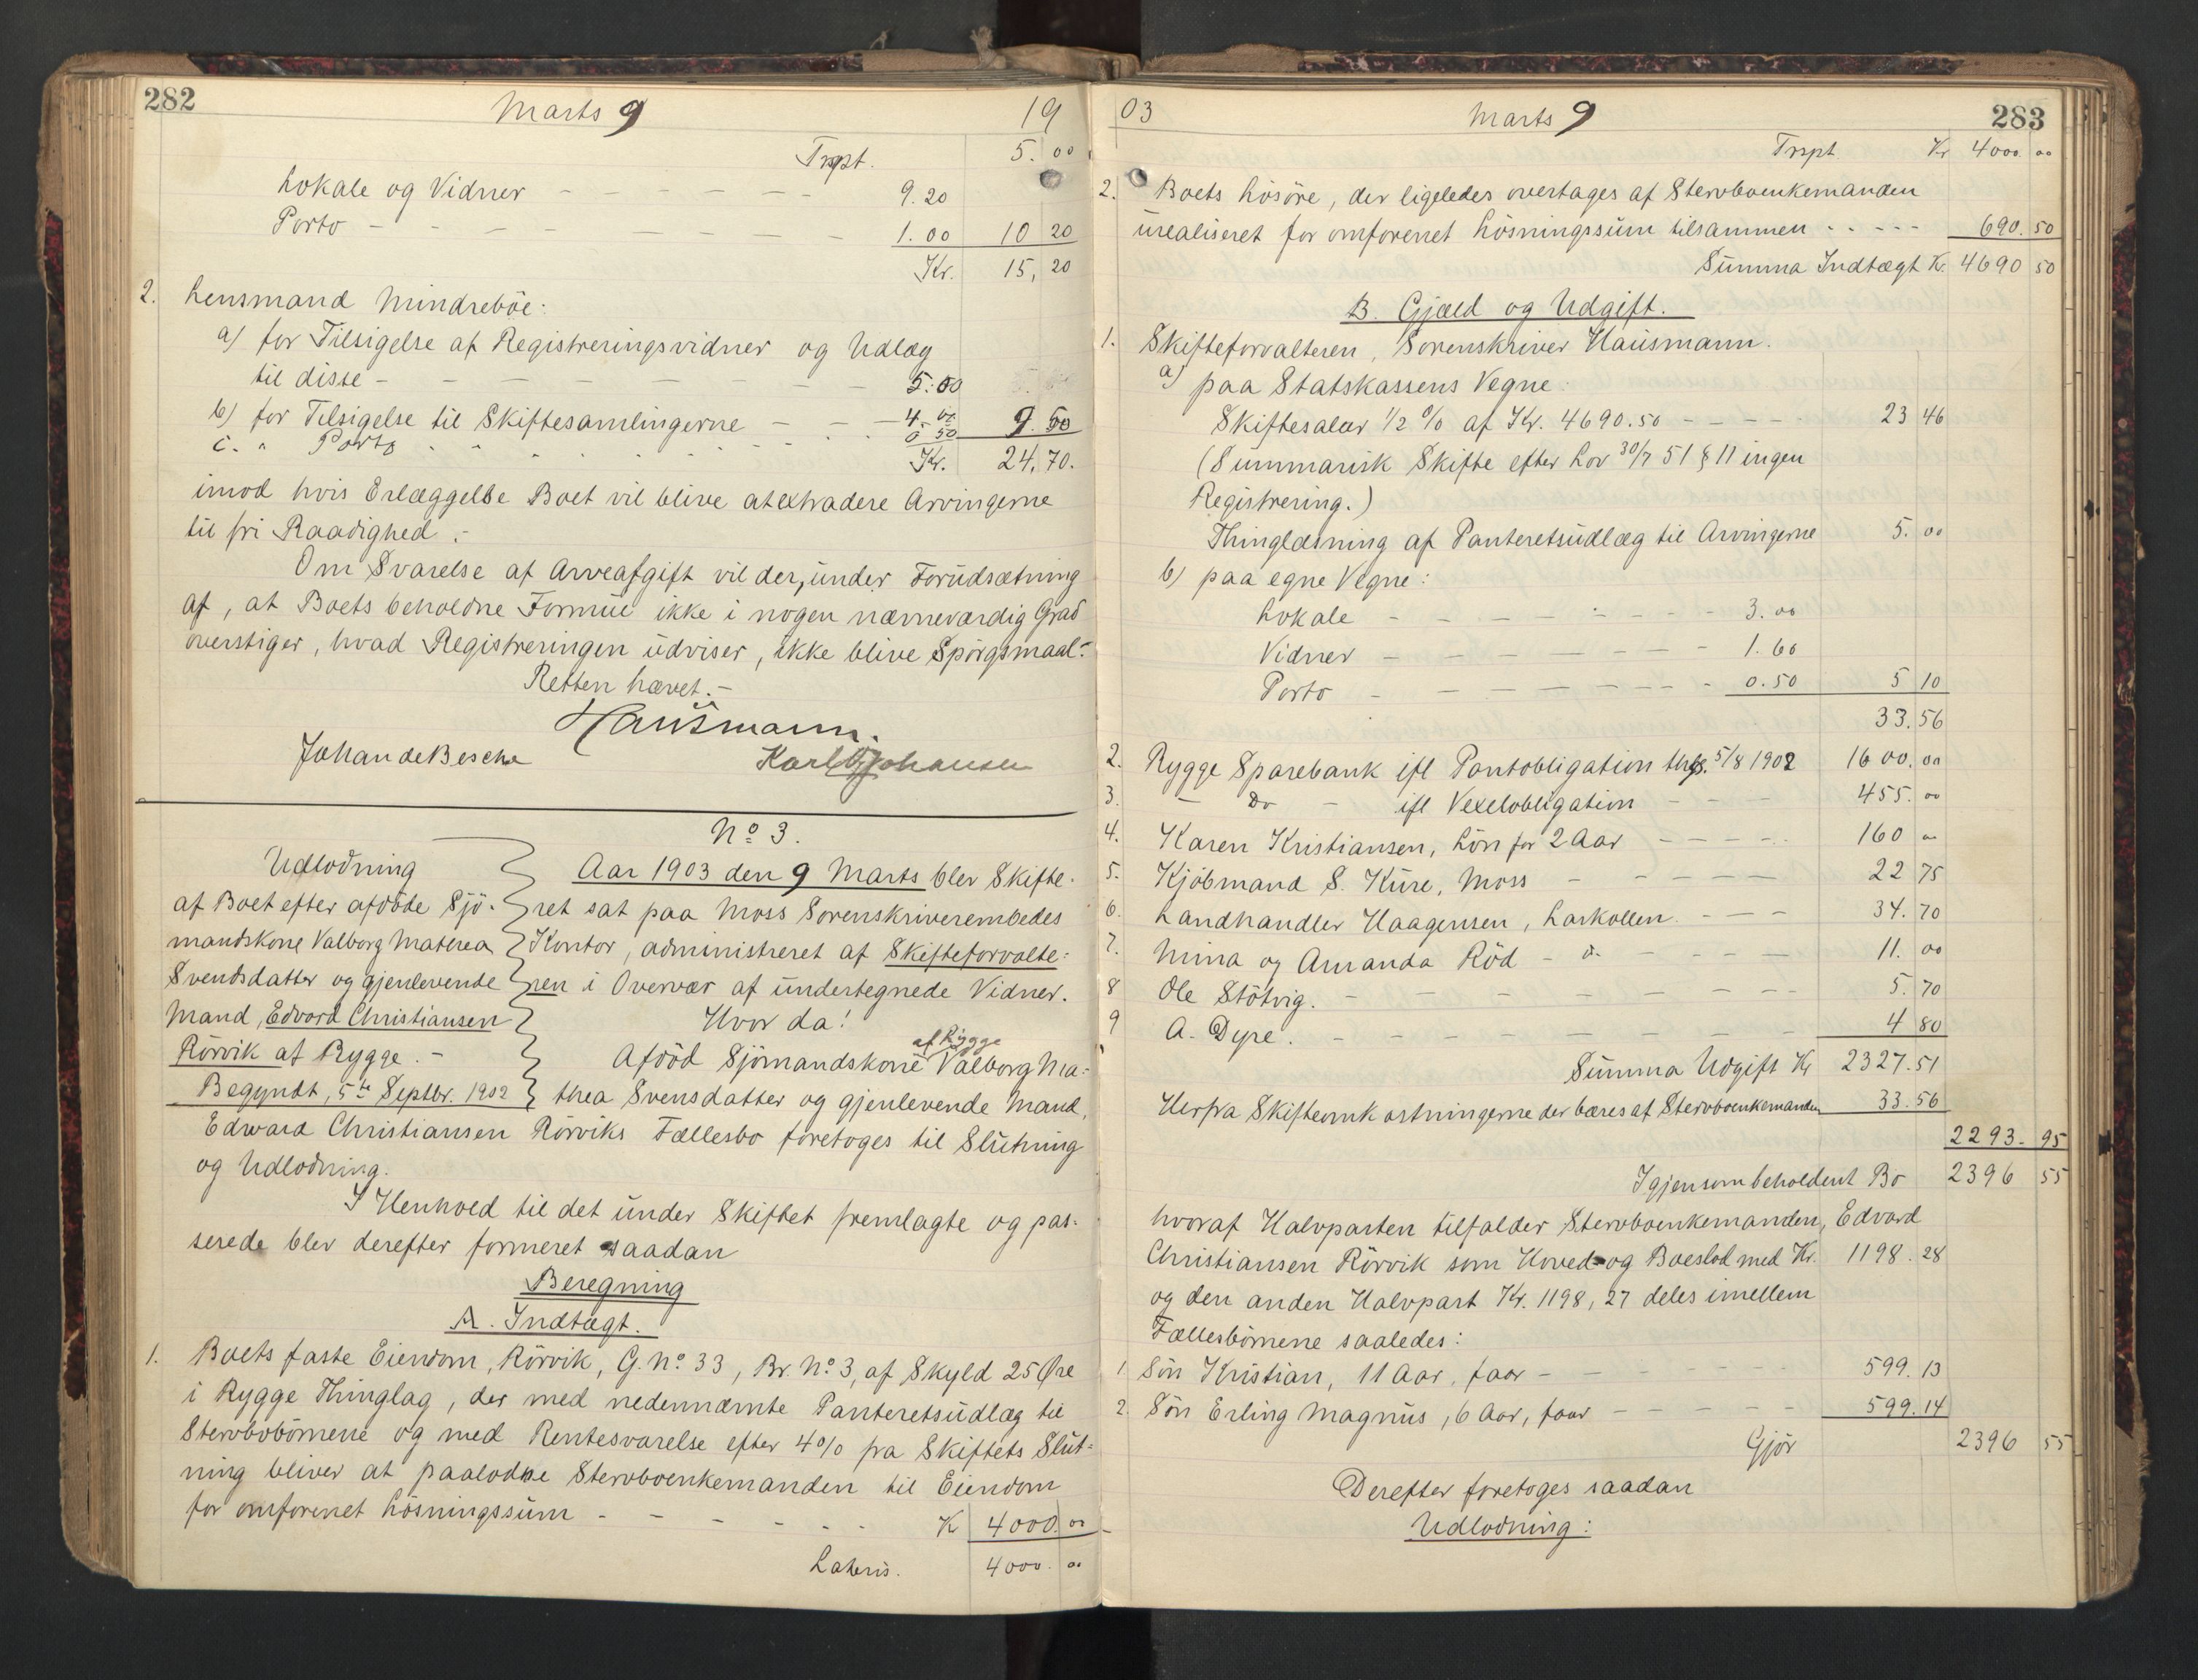 282
Marts 9
19
Trspt. 5. 00
Lokale og Vidner - - - - - - 9.20
Porto - - - - - - - - - 1.00 10 20
Kr. 15, 20
2. Lensmand Mindreböe:
a) for Tilsigelse af Registreringsvidner og Udlæg
til disse - - - - - - - - - 5.00
b) for Tilsigelse til Skiftesamlingerne - - - 4.00
c. " Porto - - - - - - 0 50 9 50
Kr. 24, 70.
imod hvis Erlæggelse Boet vil blive at extradere Arvingerne
til fri Raadighed.-
Om Svarelse af Arveafgift vil der, under Forudsætning
af, at Boets beholdne Formue ikke i nogen nævneværdig Grad
overstiger, hvad Registreringen udviser, ikke blive Spörgsmaal.-
Retten hævet.-
Hausmann.
Johan de Besche
Karl G Johansen
No 3.
Udlodning
af Boet efter afdöde Sjö-
mandskone Valborg Mathea
Svendsdatter og gjenlevende
Mand, Edvard Christiansen
Rörvik af Rygge.-
Begyndt, 5te Septbr. 1902
Aar 1903 den 9 Marts blev Skifte-
ret sat paa Moss Sorenskriverembedes
Kontor, administreret af Skifteforvalte-
ren i Overvær af undertegnede Vidner.
Hvor da!
af Rygge
Afdöd Sjömandskone Valborg Ma-
thea Svensdatter og gjenlevende Mand,
Edward Christiansen Rörviks Fællesbo foretoges til Slutning
og Udlodning.
I Henhold til det under Skiftet fremlagte og pas-
serede blev derefter formeret saadan
Beregning
A. Indtægt.
1. Boets faste Eiendom, Rörvik, G. No 33, Br. No 3, af Skyld 25 Øre
i Rygge Thinglag, der med nedennævnte Panteretsudlæg til
Stervbobörnene og med Rentesvarelse efter 4% fra Skiftets Slut-
ning bliver at paalodne Stervboenkemanden til Eiendom
for omforenet Lösningssum - - - - - - K 4000. 00
Lateris. 4000. 00
03
Marts 9
283
Trspt Kr 4000. 00
2. Boets Lösöre, der ligeledes overtages af Stervboenkemanden
urealiseret for omforenet Lösningssum tilsammen - - - - - 690. 50
Summa Indtægt K. 4690 50
B. Gjæld og Udgift.
1. Skifteforvalteren, Sorenskriver Hausmann.
a) paa Statskassens Vegne:
Skiftesalær 1/2 % af Kr. 4690.50 - - - - - 23 46
(Summarisk Skifte efter Lov 30/7 51 § 11 ingen
Registrering.)
Thinglæsning af Panteretsudlæg til Arvingerne 5. 00
b) paa egne Vegne:
Lokale - - - - - - - - 3.00
Vidner - - - - - - - 1.60
Porto - - - - - - - - 0.50 5 10
33. 56
2. Rygge Sparebank ifl Pantobligation thgl. 5/8 1902 1600. 00
3. - Do - ifl Vexelobligation - - - 455. 00
4. Karen Kristiansen, Lön for 2 Aar - - - - - 160 00
5. Kjöbmand S. Kure, Moss - - - - - - 22 75
6. Landhandler Haagensen, Larkollen. - - - 34. 70
7. Mina og Amanda Röd - d. - - - - 11. 00
8 Ole Stötvig. - - - - - - - - 5. 70
9 A. Dyre. - - - - - - - - 4 80
Summa Udgift Kr 2327. 51
Herfra Skifteomkostningerne der bæres af Stervboenkemanden 33. 56
2293. 95
Igjen som beholdent Bo 2396 55
hvoraf Halvparten tilfalder Stervboenkemanden, Edvard
Christiansen Rörvik som Hoved- og Boeslod med Kr. 1198. 28
og den anden Halvpart Kr. 1198, 27 deles imellem
Fællesbörnene saaledes:
1 Sön Kristian, 11 Aar, faar - - - - - 599. 13
2. Sön Erling Magnus, 6 Aar, faar - - - - - 599. 14
Gjör 2396 55
Derefter foretoges saadan
Udlodning: